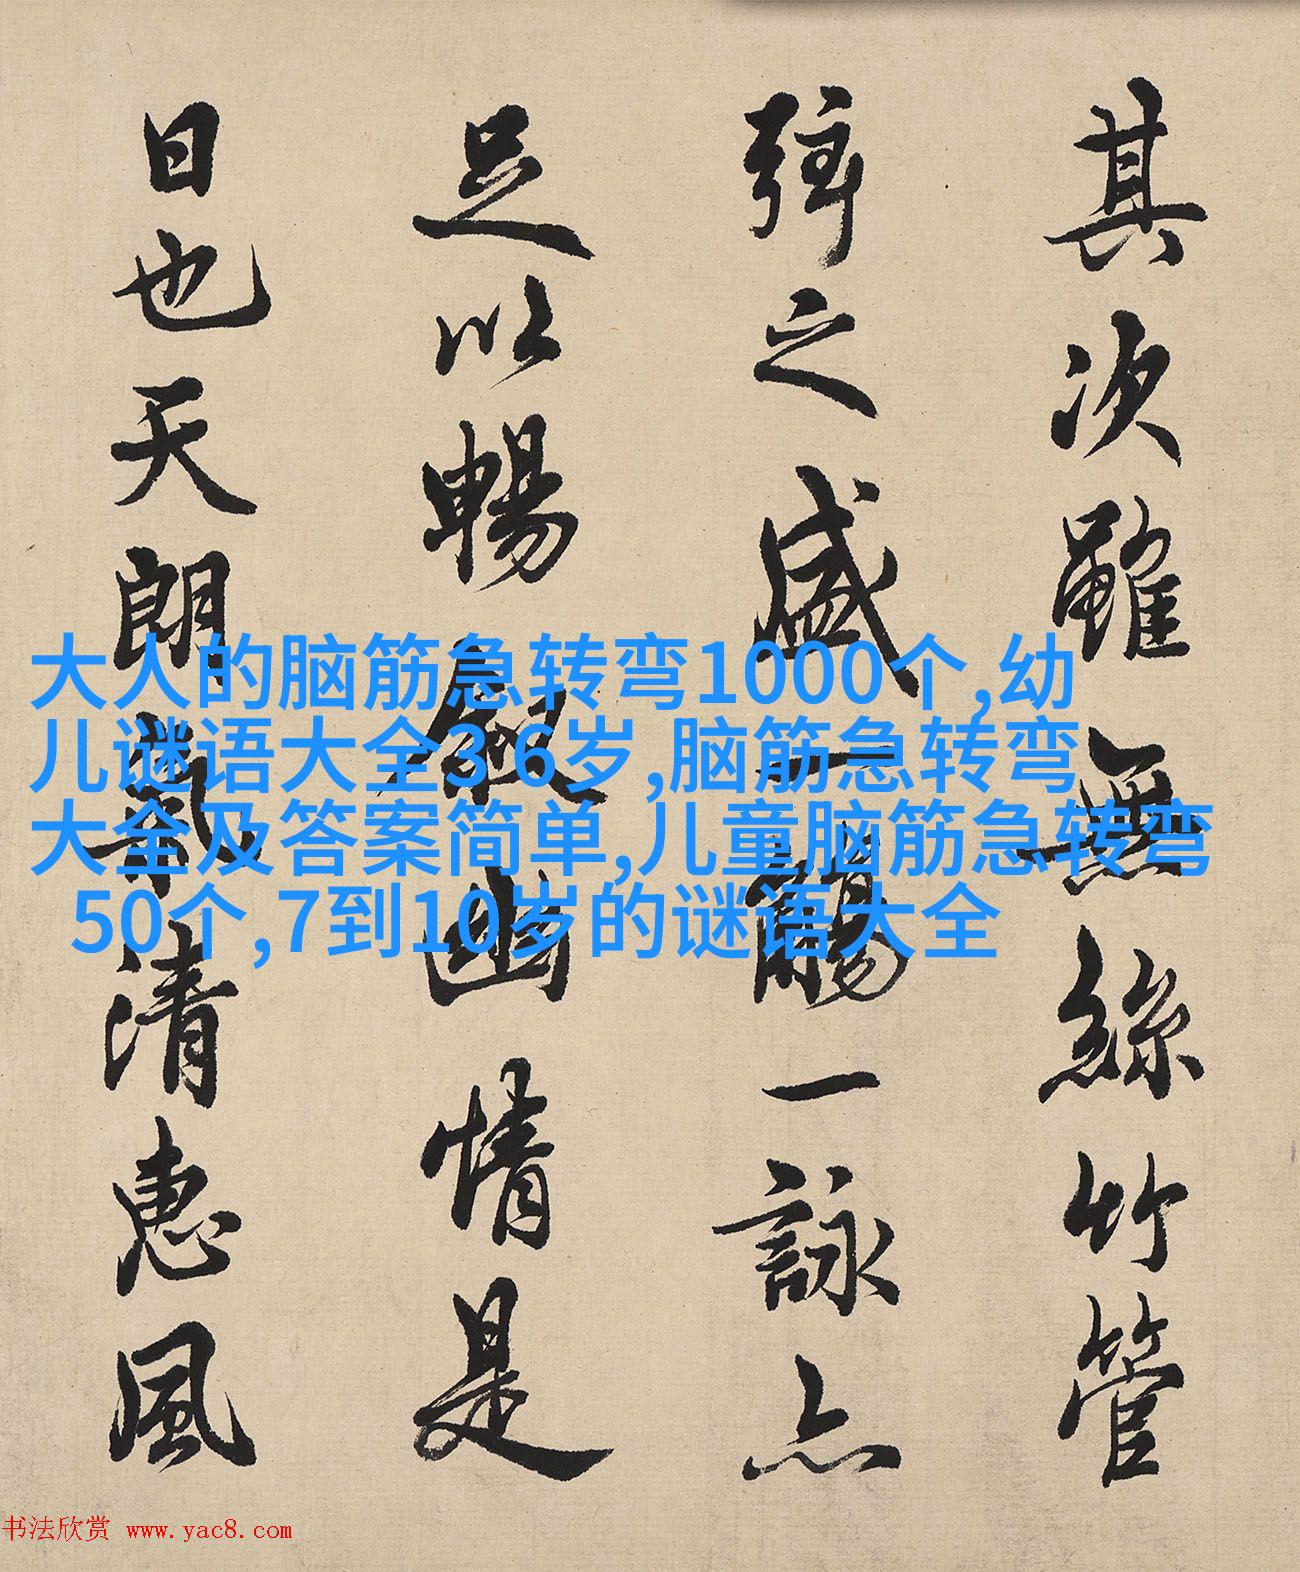 其次雖無絲竹管
弦之盛一觴一詠亦
足以暢叙幽情是
日也天朗氣清惠風
大人的脑筋急转弯1000个,幼
儿谜语大全3 6岁,脑筋急转弯
大全及答案简单,儿童脑筋急转弯
50个,7到10岁的谜语大全
书法欣赏 www.yac8.com